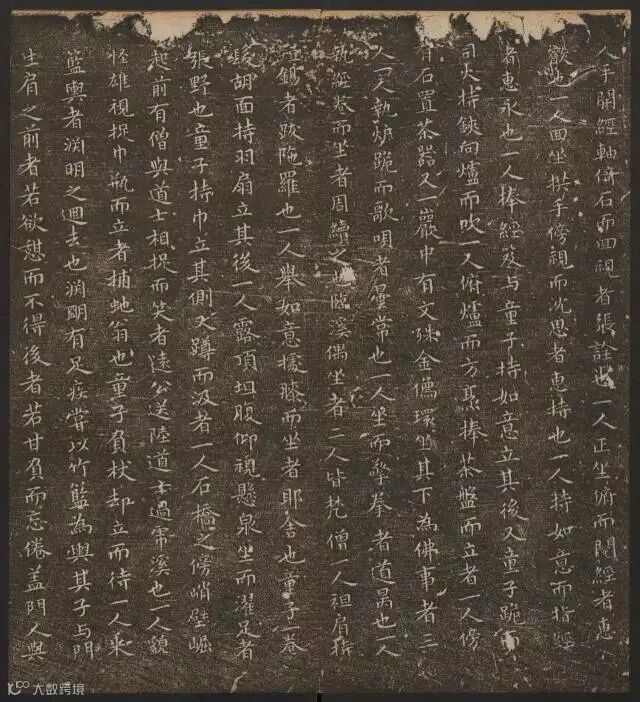 人手開經軸倚石而回視者張詮也一人正坐俯而閱經者惠
叡也一人面坐拱手傍視而沈思者惠持也一人持如意而指經
者惠永也一人捧經及与童子持如意立其後又童子跪而
司火持鋏向爐而吹一人俯爐而方聚捧茶盤而立者一人傍
有石置茶器又一巖中有文殊金像環坐其下為佛事者三
人一人執炉跪而歌唄者曇常也一人坐而擎拳者道昺也一人
執經卷而坐者周續之也臨溪偶坐者二人皆梵僧一人袒肩持
短錫者跋陁羅也一人舉如意據膝而坐者耶舍也童子一卷
髮胡面持羽扇立其後一人露頂坦腹仰視懸泉坐而濯足者
張野也童子持巾立其側又蹲而汲者一人石橋之傍峭壁崛
起前有僧與道士相捉而笑者遠公送陸道士過虎溪也一人貌
怪雄視捉巾瓶而立者捕虵翁也童子負杖却立而待一人乘
籃輿者淵明之迴去也淵明有足疾嘗以竹籃為輿其子与門
生肩之前者若欲憩而不得後者若甘負而忘倦盖門人與
大数跨境